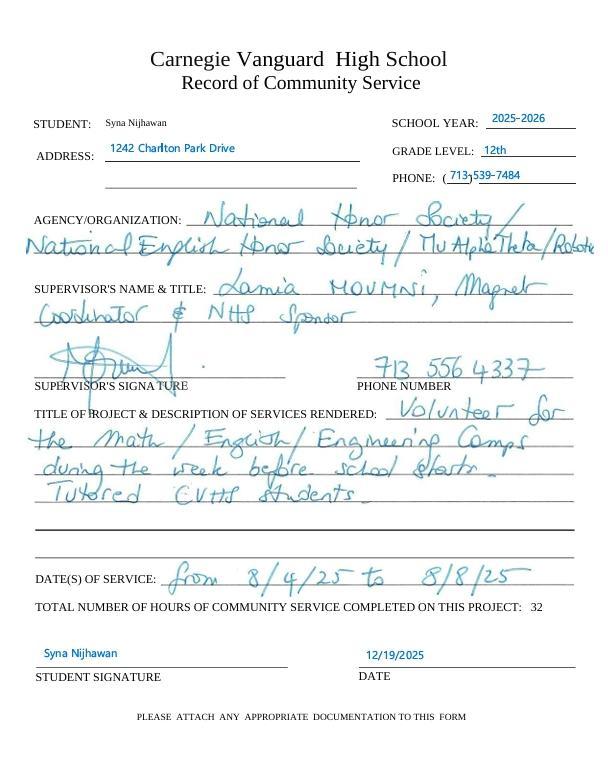 Carnegie Vanguard High School
Record of Community Service
STUDENT: Syna Nijhawan
SCHOOL YEAR: 2025-2026
ADDRESS: 1242 Charlton Park Drive
GRADE LEVEL: 12th
PHONE: (713)539-7484
AGENCY/ORGANIZATION: National Honor Society /
National English Honor Society / Mu Alpha Theta / Robotic
SUPERVISOR'S NAME & TITLE: Lamia MOUMNI, Magnet
Coordinator & NHS Sponsor
713 556 4337
SUPERVISOR'S SIGNATURE PHONE NUMBER
TITLE OF PROJECT & DESCRIPTION OF SERVICES RENDERED: Volunteer for
the Math / English / Engineering Camps
during the week before school starts.
Tutored CVHS students.
DATE(S) OF SERVICE: from 8/4/25 to 8/8/25
TOTAL NUMBER OF HOURS OF COMMUNITY SERVICE COMPLETED ON THIS PROJECT: 32
Syna Nijhawan 12/19/2025
STUDENT SIGNATURE DATE
PLEASE ATTACH ANY APPROPRIATE DOCUMENTATION TO THIS FORM